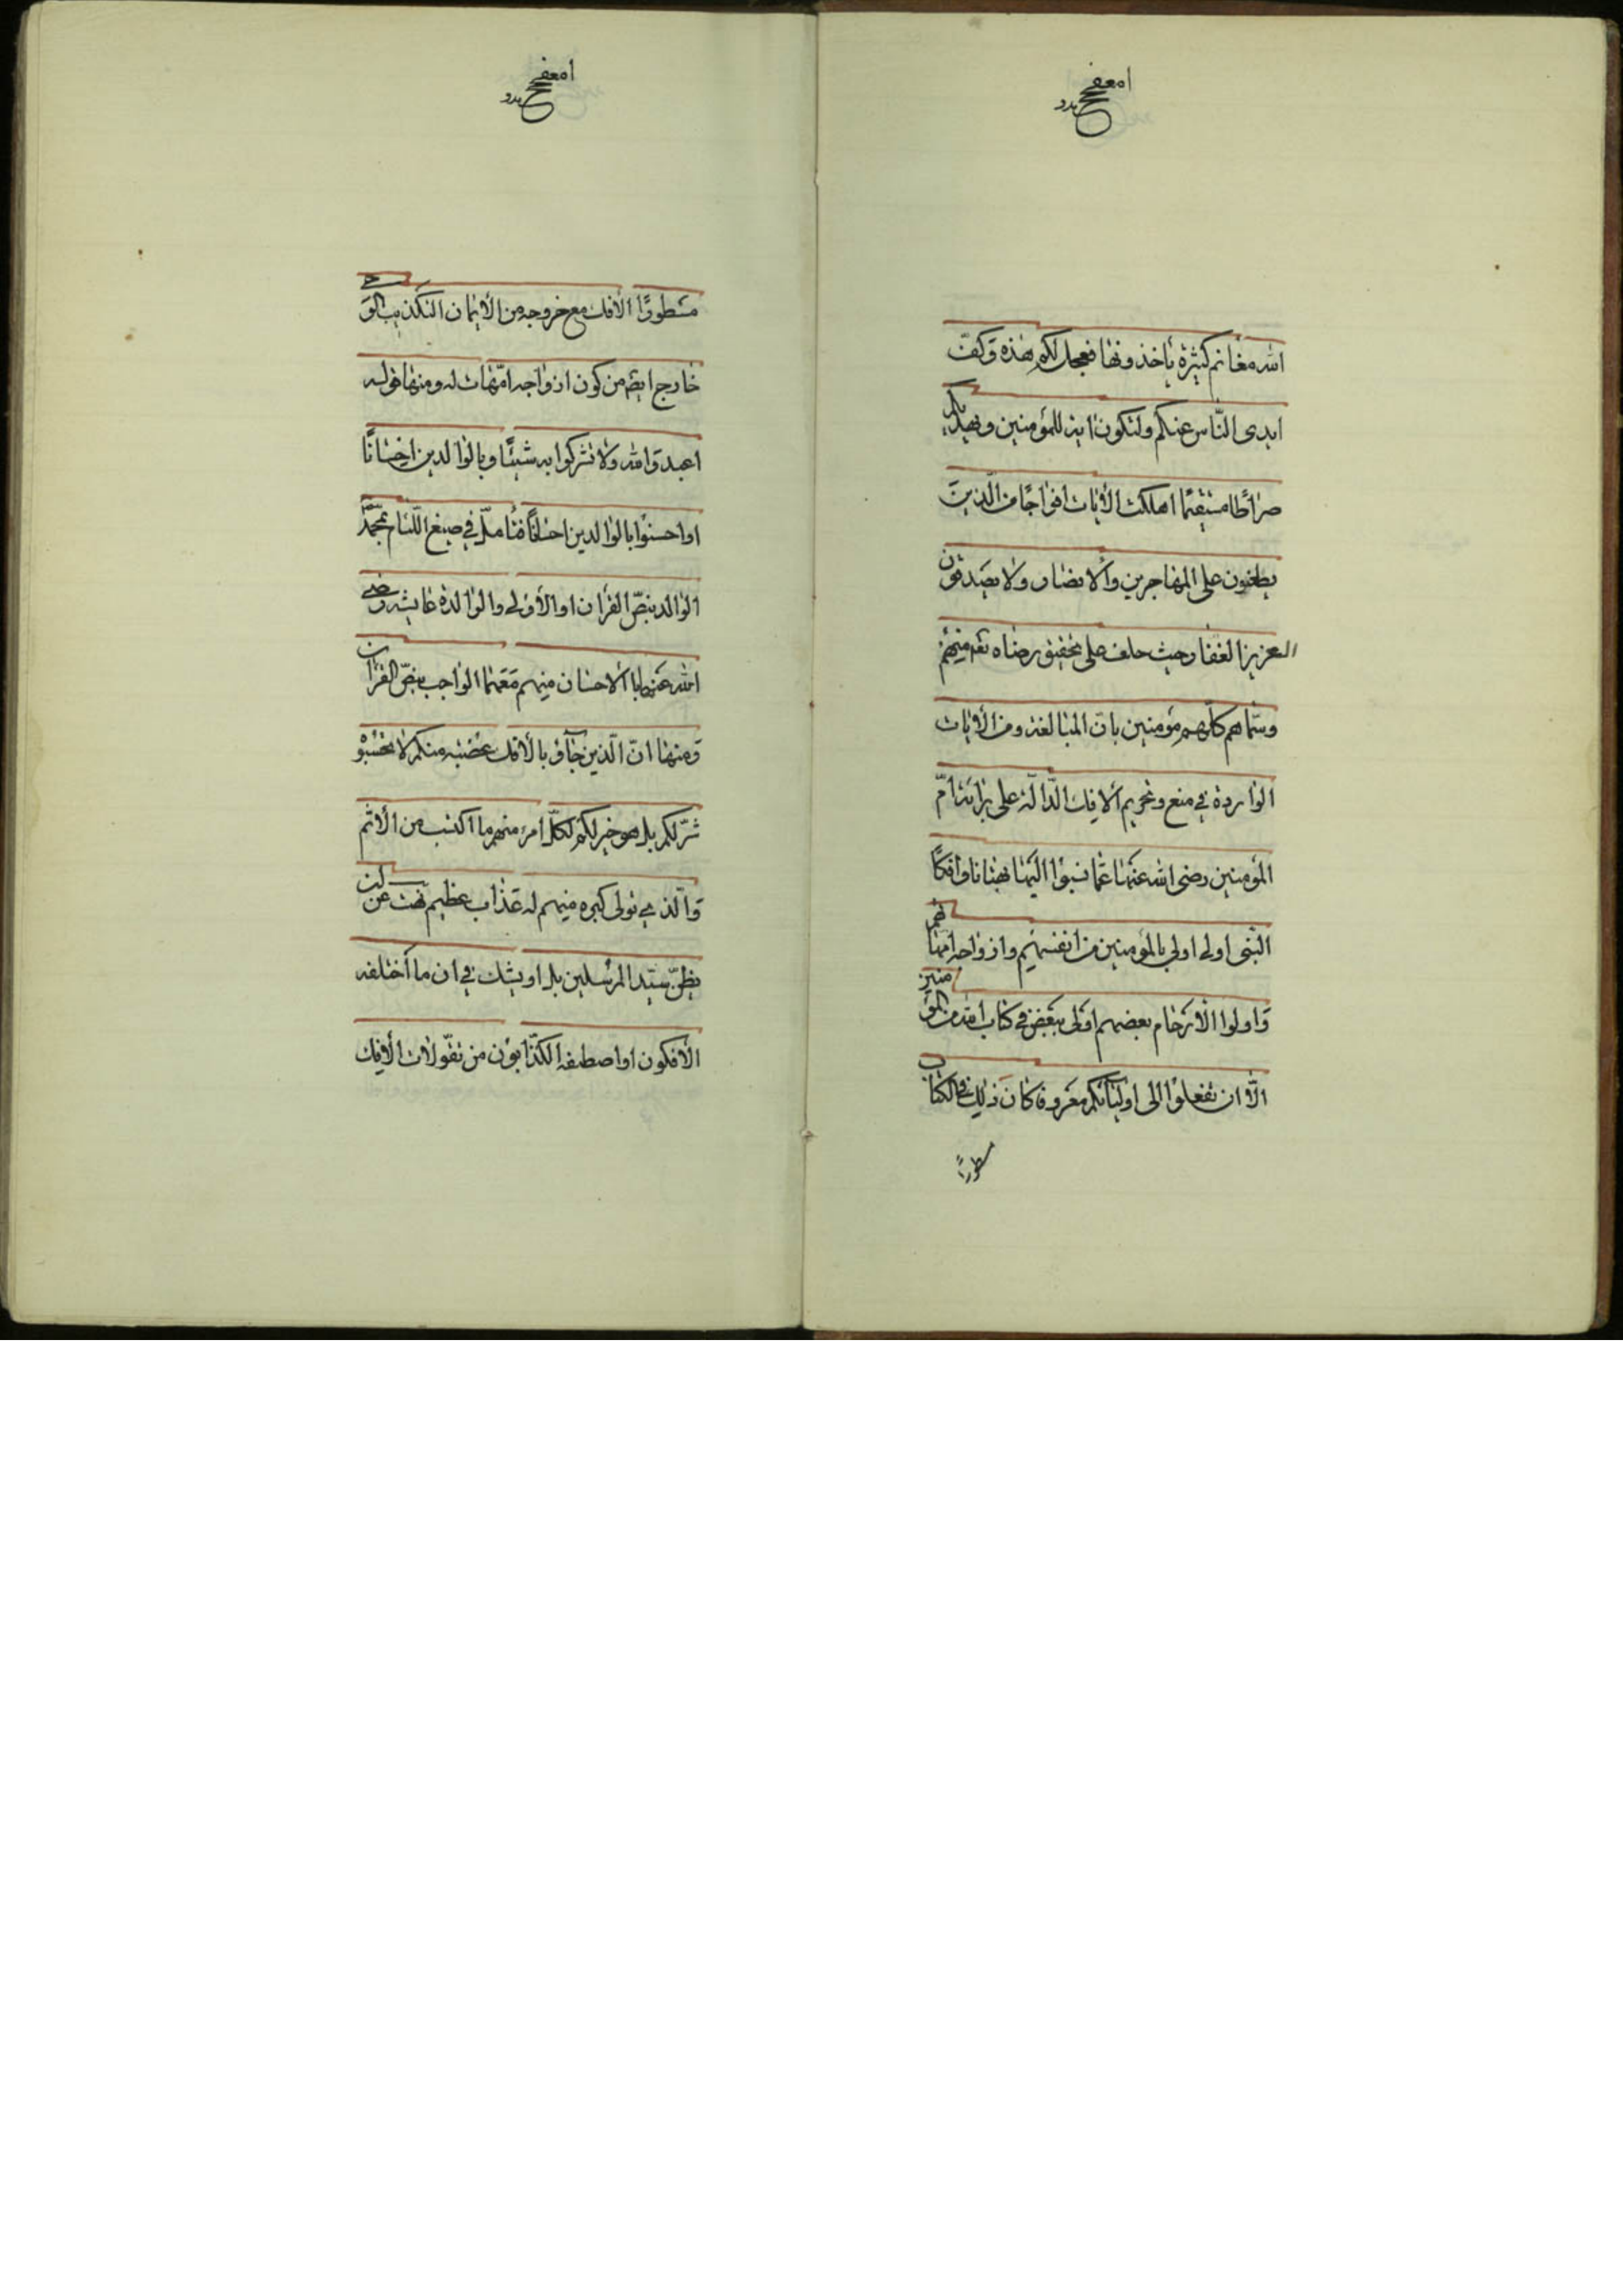 الله مغانم كثيرة ياخذونها فعجل لكم هذه وكفّ
ايدى النّاس عنكم ولتكون اية للمؤمنين ويهديكم
صراطا مستقيما اهلكت الأيات افواجًا من الّذين
يطعنون على المهاجرين والانصار ولا يصدقون
العزيز الغفار حيث حلف على تحقيق رضاه تعم منهم
وسمّاهم كلّهم مؤمنين بانّ المبالغة ومن الأيات
الواردة في منع وتحريم الافك الدّالّة على برائة امّ
المؤمنين رضى الله عنها عمّا نسبوا اليها بهتانا وافكًا
النّبى اولى اولى بالمؤمنين من انفسهم وازواجه امهاتهم
واولوا الأرحام بعضهم اولى ببعض في كتاب الله من المؤمنين
الّا ان تفعلوا الى اوليائكم معروفا كان ذلك في الكتاب
مسطورًا الأفك مع خروجه من الأيمان
خارج ايضم من كون ازواجه امّهات له ومنها قوله
اعبدوا الله ولا تشركوا به شيئًا وبالوالدين احسانًا
او احسنوا بالوالدين احسانًا فتأمّل في صيغ اللّئام
الوالد بنصّ القرأن او الأولى والوالدة عايشة رضى
الله عنها با الاحسان منهم معهما الواجب بنصّ القرأن
ومنها انّ الّذين جآؤ بالأفك عصبة منكم لا تحسبوه
شرّ لكم بل هو خير لكم لكلّ امرء منهم ما اكتسب من الأثم
والّذى تولى كبره منهم له عذاب عظيم
بظنّ سيّد المرسلين بل او يشك في ان ما اختلفه
الأفكون او اصطفه الكذّابون من تقوّلات الأفك